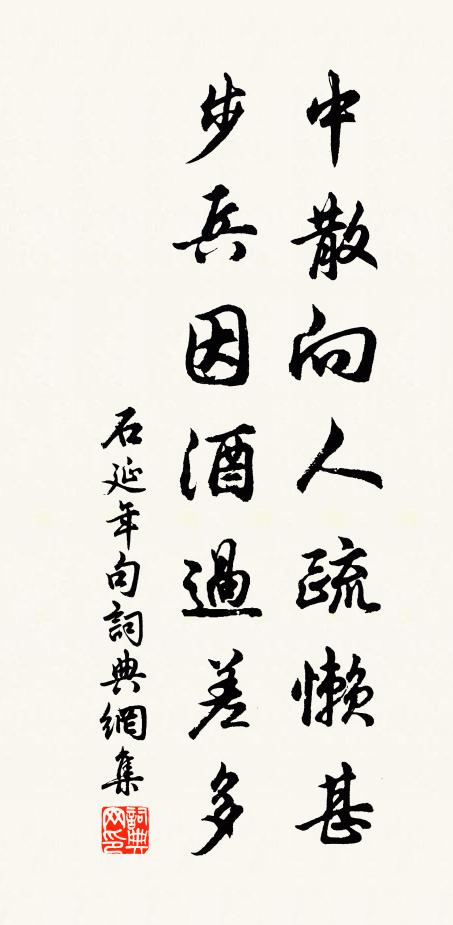 中散向人疏懶甚
步兵因酒過差多
石延年句詞典網集
詞典
网印